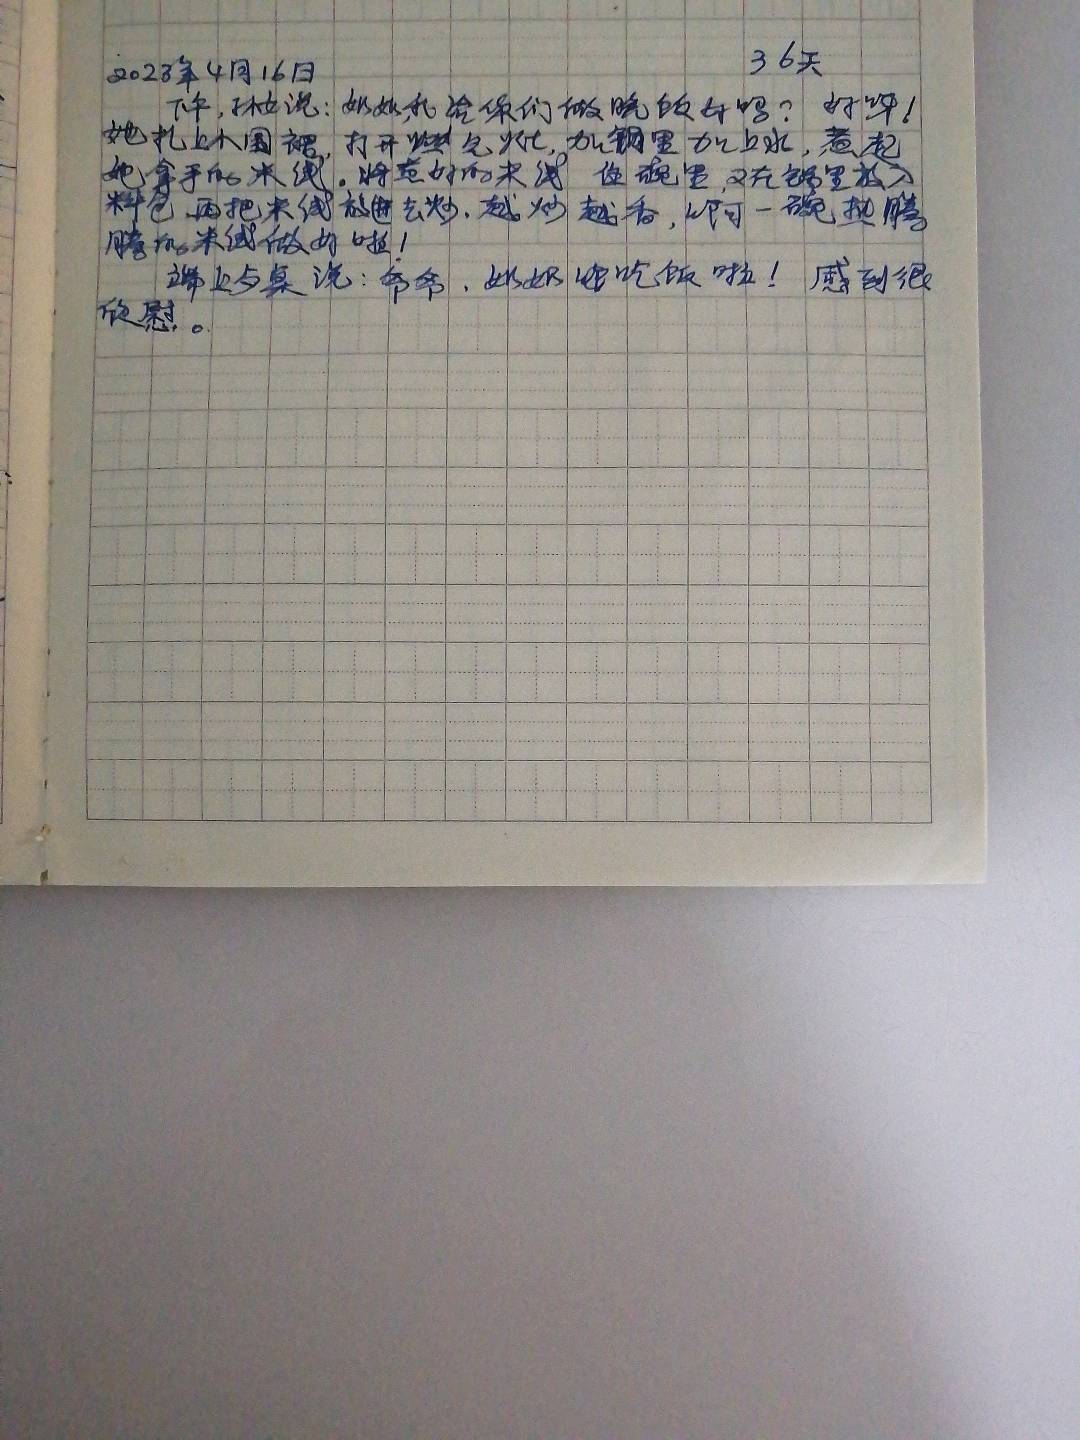 2023年4月16日 36天
下午,孙女说:奶奶我给你们做晚饭好吗? 好呀!
她扎上小围裙,打开燃气灶,加锅里加上水,煮起
她拿手的米线。将煮好的米线 在碗里,又在锅里放入
料包,再把米线放进去炒.越炒越香,一碗热腾
腾的米线做好啦!
端上与桌说:爷爷.奶奶快吃饭啦! 感到很
欣慰。